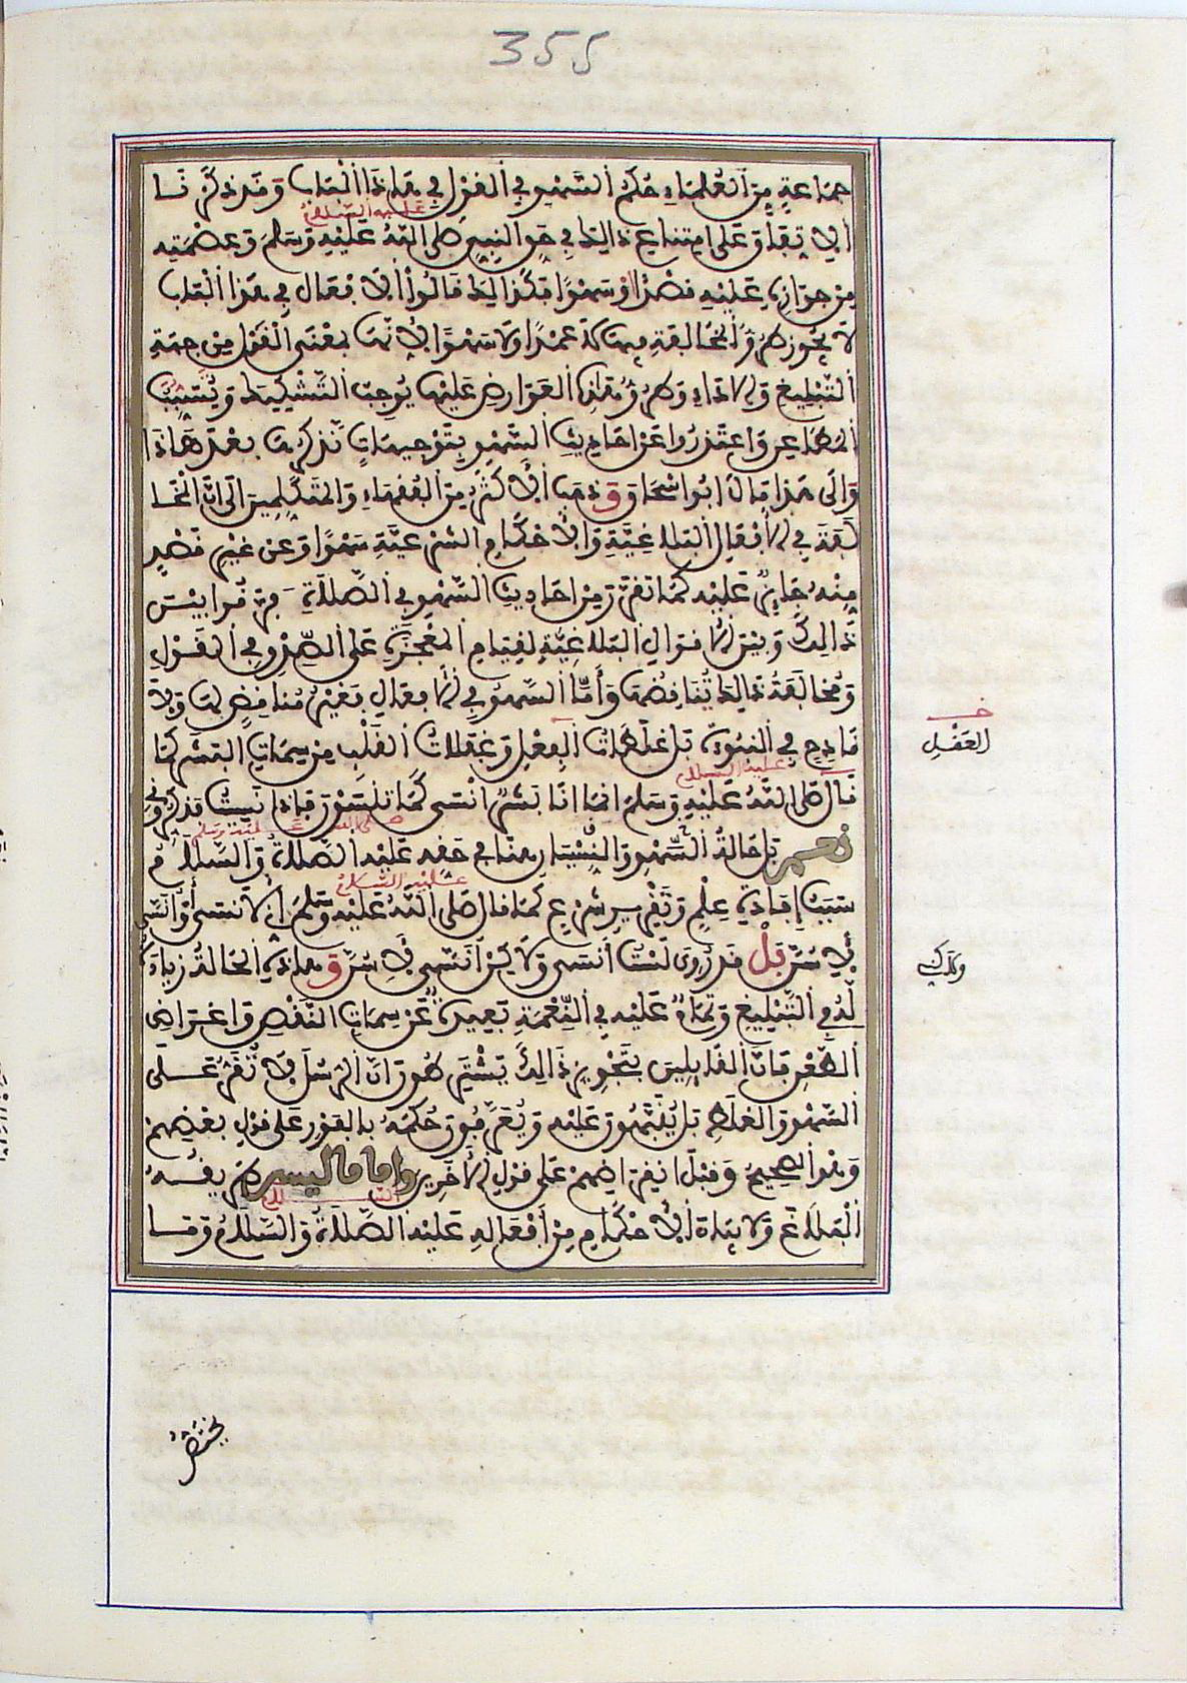 355
جماعة من العلماء حكم السهو في القول في هاذا الباب وقد ذكرنا
عليه السلام
الاتفاق على امتناع ذالك في حق النبي صلى الله عليه وسلم وعصمته
من جوازه عليه قصدا او سهوا فكذالك قالوا الافعال في هذا الباب
لا يجوز طرو المخالفة فيها لا عمدا ولا سهوا لانها بمعنى القول من جهة
التبليغ والاداء وطرو هاذه العوارض عليها يوجب التشكيك ويسبب
المطاعن واعتذروا عن احاديث السهو بتوجيهات نذكرها بعد هاذا
والى هذا مال ابو اسحاق وذهب الاكثر من الفقهاء والمتكلمين الى ان المخا
لفة في الافعال البلاغية والاحكام الشرعية سهوا وعن غير قصد
منه جايز عليه كما تقرر من احاديث السهو في الصلاة وفرقوا بين
ذالك وبين الاقوال البلاغية لقيام المعجزة على الصدق في القول
ومخالفة ذالك يناقضها وأما السهو في الافعال فغير مناقض لها ولا
قادح في النبوة بل غلطات الفعل وغفلات القلب من سمات البشر كما
خـ
العقل
عليه السلام
قال صلى الله عليه وسلم انما انا بشر انسى كما تنسون فاذا نسيت فذكروني
صلى الله عليه وسلم
نعم بل حالة السهو والنسيان هنا في حقه عليه الصلاة والسلام
عليه السلام
سبب إفادة علم وتقرير شرع كما قال صلى الله عليه وسلم اني لا نسى أو انسى
لاسن بل قد روي لست أنسى ولاكن أنسى لاسن وهاذه الحالة زيادة
وكذلك
له في التبليغ وتمام عليه في النعمة بعيدة عن سمات النقص واعتراض
الطعن فان القايلين بتجويز ذالك يشترطون ان الرسل لا تقر على
السهو والغلط بل ينبهون عليه ويعرفون حكمه بالفور على قول بعضهم
وهو الصحيح وقبل انقراضهم على قول الاخرين واما ما ليس طريقه
السلام
البلاغ ولا بيان الاحكام من أفعاله عليه الصلاة والسلام وما
يختص